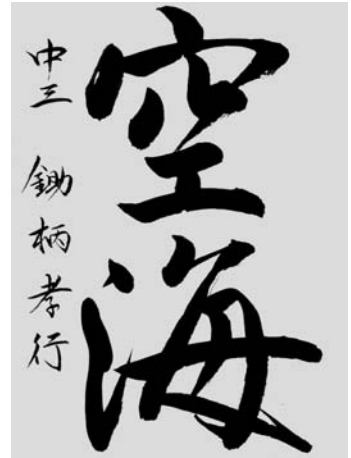 空海
中三 鋤柄孝行